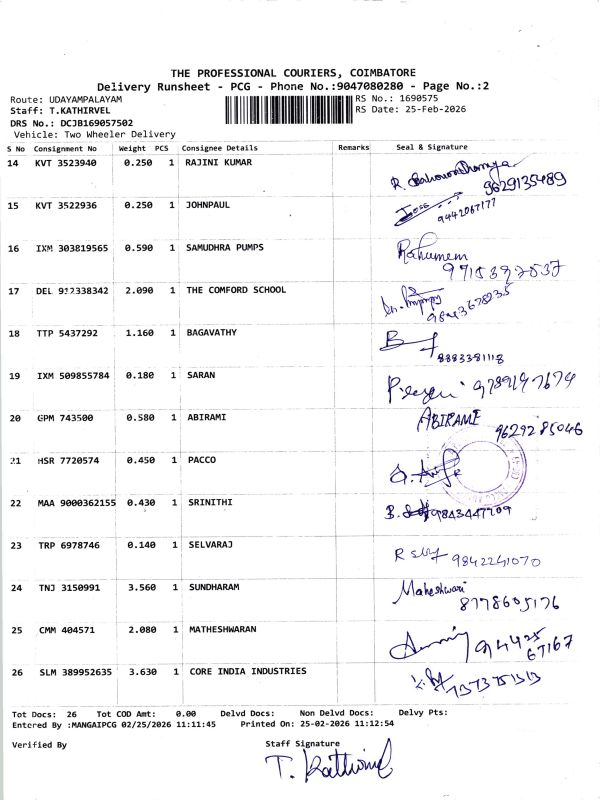 THE PROFESSIONAL COURIERS, COIMBATORE
Delivery Runsheet - PCG - Phone No.:9047080280 - Page No.:2
Route: UDAYAMPALAYAM RS No.: 1690575
Staff: T.KATHIRVEL RS Date: 25-Feb-2026
DRS No.: DCJB169057502
Vehicle: Two Wheeler Delivery
S No Consignment No Weight PCS Consignee Details Remarks Seal & Signature
14 KVT 3523940 0.250 1 RAJINI KUMAR
9629135489
15 KVT 3522936 0.250 1 JOHNPAUL
9442067177
16 IXM 303819565 0.590 1 SAMUDHRA PUMPS
17 DEL 912338342 2.090 1 THE COMFORD SCHOOL
9843678235
18 TTP 5437292 1.160 1 BAGAVATHY
8883381118
19 IXM 509855784 0.180 1 SARAN
20 GPM 743500 0.580 1 ABIRAMI ABIRAMI
9629285046
21 HSR 7720574 0.450 1 PACCO
22 MAA 9000362155 0.430 1 SRINITHI
9843447709
23 TRP 6978746 0.140 1 SELVARAJ
9842241070
24 TNJ 3150991 3.560 1 SUNDHARAM Maheshwari
8778605176
25 CMM 404571 2.080 1 MATHESHWARAN
94425
67167
26 SLM 389952635 3.630 1 CORE INDIA INDUSTRIES
7373751313
Tot Docs: 26 Tot COD Amt: 0.00 Delvd Docs: Non Delvd Docs: Delvy Pts:
Entered By :MANGAIPCG 02/25/2026 11:11:45 Printed On: 25-02-2026 11:12:54
Verified By Staff Signature
T. Kathirvel